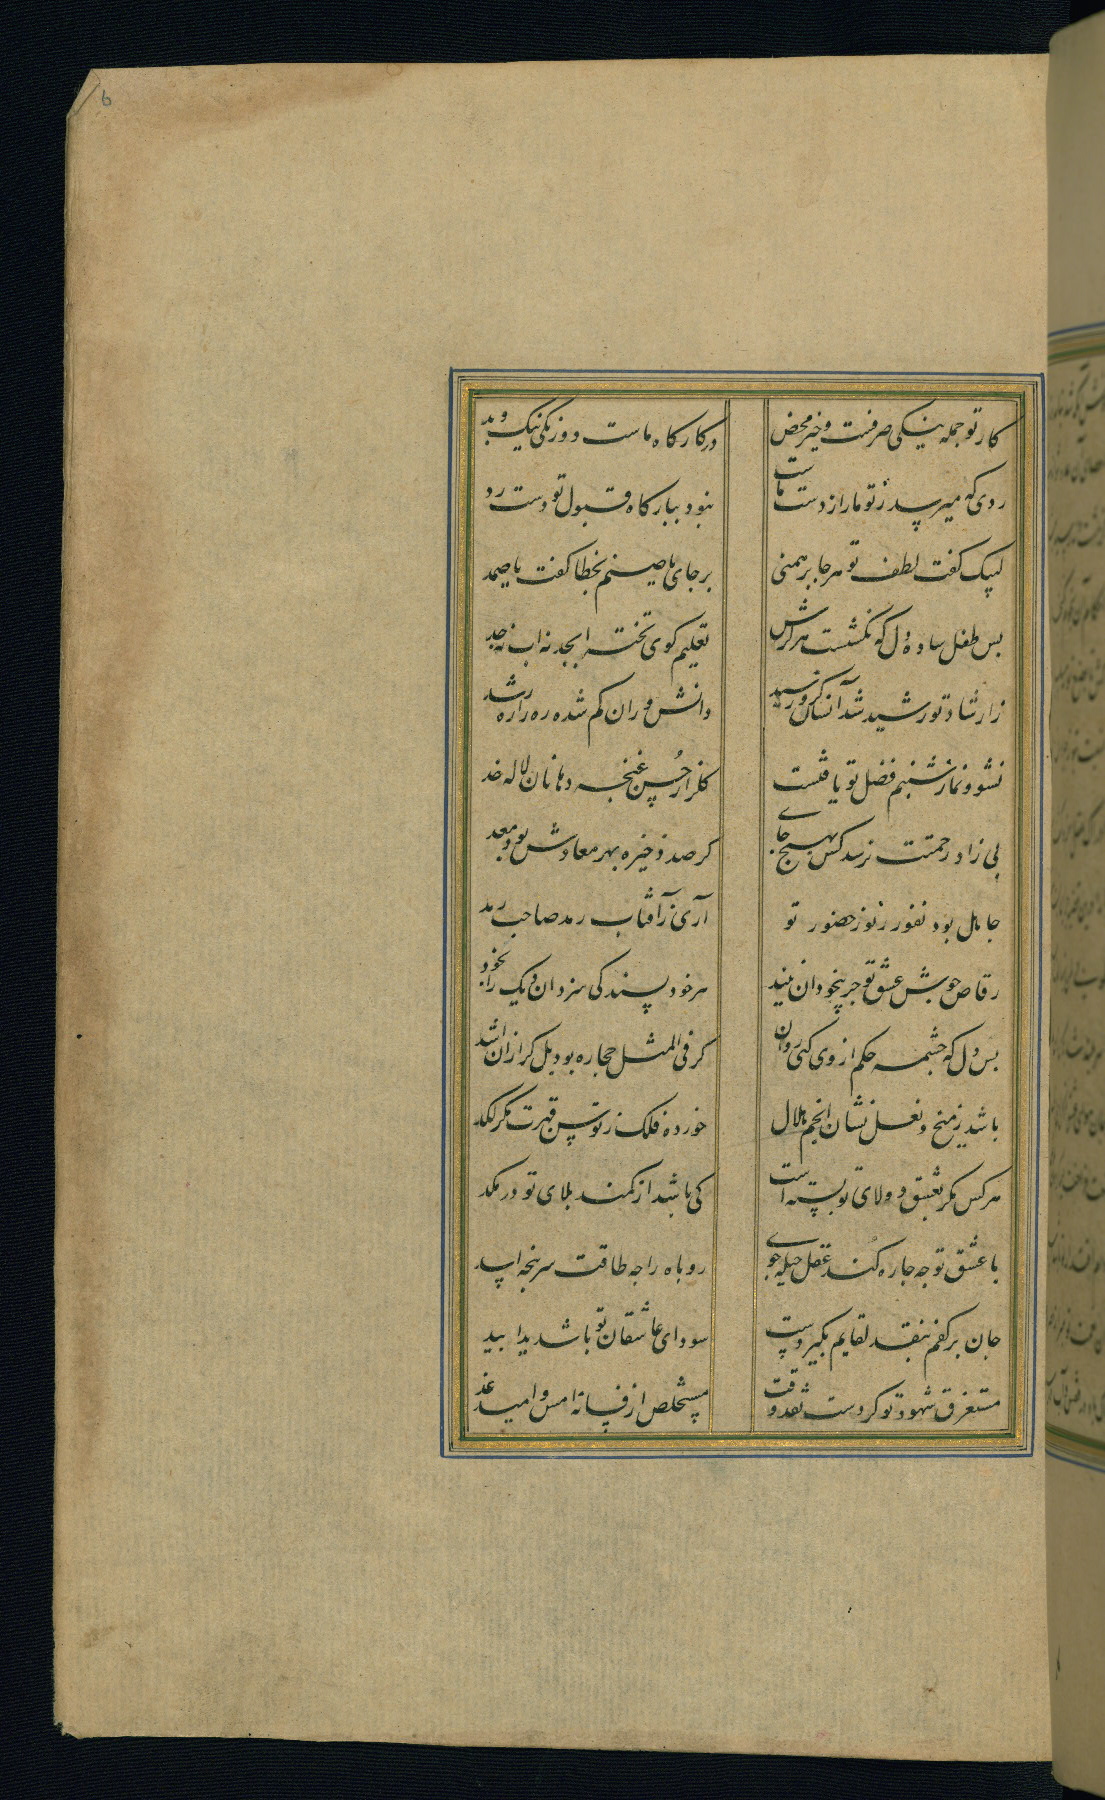 6
کار تو جمله نیکی صرفست و خیر محض
در کارگاه ماست دو رنگی نیک و بد
ردی که میرسد ز تو ما را ز دست ماست
نبود ببارگاه قبول تو دست رد
لبیک گفت لطف تو هر جا برهمنی
بر جای یا صنم بخطا گفت یا صمد
بس طفل ساده دل که نگشست هرگزش
تعلیم گوی تختهٔ ابجد نه اب نه جد
ز ارشاد تو رشید شد آنسان کزو رسید
دانش وران گم شده ره را ره رشد
نشو و نما ز شبنم فضل تو یافتست
گلزار حسن غنچه دهانان لاله خد
بی زاد رحمتت نرسد کس بهیچ جای
گر صد ذخیره بهر معادش بود معد
جاهل بود نفور ز نور حضور تو
آری ز آفتاب رمد صاحب رمد
رقاص جوش عشق تو جز بیخودان نیند
هر خود پسند کی سزد آن دیک را نخود
بس دل که چشمه حکم از وی کنی روان
گر فی المثل حجاره بود بل کز ان اشد
باشد ز میخ و نعل نشان انجم و هلال
خورده فلک ز توسن قهرت مگر لگد
هر کس کمر بعشق و ولای تو بسته است
کی باشد از کمند بلای تو در کمد
با عشق تو چه چاره کند عقل حیله جوی
روباه را چه طاقت سرپنجه اسد
جان بر کفم بنقد لقایم بگیر دست
سودای عاشقان تو باشد یدا بید
مستغرق شهود تو کردست نقد وقت
مستخلص از فسانه امس و امید غد